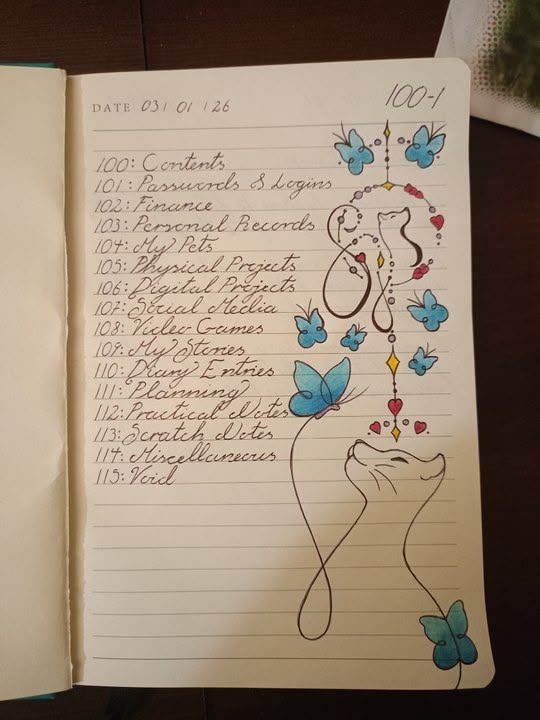 DATE 03 | 01 | 26
100-1
100: Contents
101: Passwords & Logins
102: Finance
103: Personal Records
104: My Pets
105: Physical Projects
106: Digital Projects
107: Social Media
108: Video Games
109: My Stories
110: Diary Entries
111: Planning
112: Practical Notes
113: Scratch Notes
114: Miscellaneous
115: Void